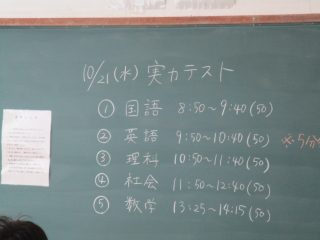 10/21(水) 実力テスト
① 国語 8:50~9:40(50)
② 英語 9:50~10:40(50) ※5分
③ 理科 10:50~11:40(50)
④ 社会 11:50~12:40(50)
⑤ 数学 13:25~14:15(50)